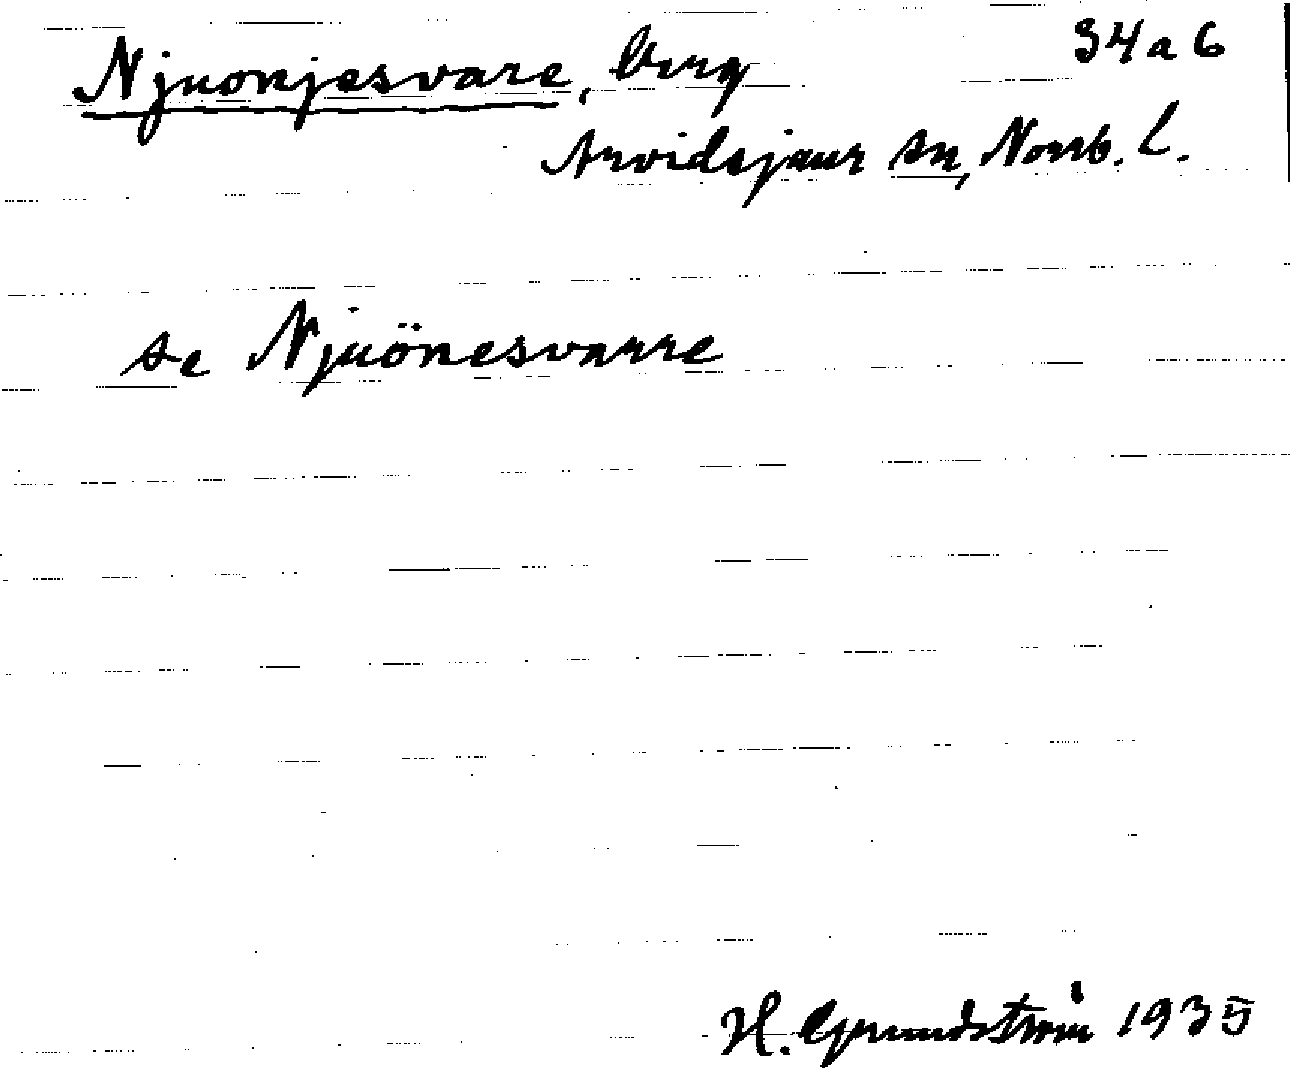 Njuonjesvare, berg 34a6
Arvidsjaur sn, Norrb. L.
se Njuönesvarre
H. Grundström 1935